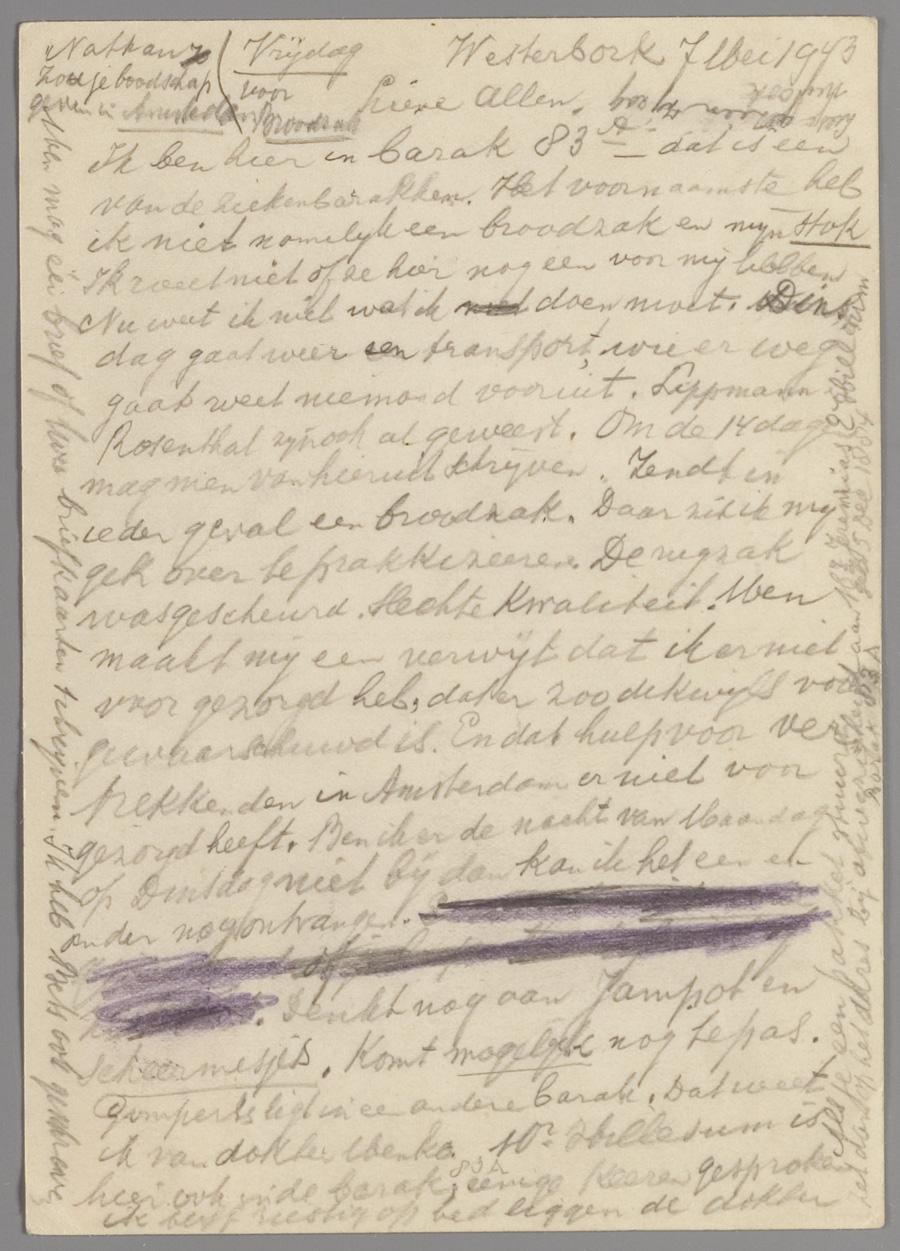 Nathan
Zou je boodschap
geven in Amsterdam
Vrijdag
voor
Broodzak
Westerbork 7 Mei 1943
Lieve Allen.
Ik ben hier in barak 83 A. dat is een
van de ziekenbarakken. Het voornaamste heb
ik niet namelijk een broodzak en mijn Stok
Ik weet niet of ze hier nog een voor mij hebben
Nu weet ik niet wat ik doen moet. Dins
dag gaat weer een transport, wie er weg
gaat weet niemand vooruit. Lippmann
Rosenthal zijn ook al geweest. Om de 14 dag
mag men van hieruit schrijven. Zendt in
ieder geval een broodzak. Daar zit ik mij
gek over te prakkizeeren. De rugzak
was gescheurd. Slechte Kwaliteit. Men
maakt mij een verwijt dat ik er niet
voor gezorgd heb, dat er zoo dikwijls voor
gewaarschuwd is. En dat hulp voor ver
trekkenden in Amsterdam er niet voor
gezorgd heeft. Ben ik er de nacht van Maandag
op Dinsdag niet bij dan kan ik het een en
ander nog ontvangen.
Denkt nog aan Jampot en
Scheermesjes. Komt mogelijk nog te pas.
Gomperts ligt in een andere barak. Dat weet
ik van dokter Menko. Dr. Hillesum is
hier ook in de barak 83A, eenige keeren gesproken
ik blijf rustig op bed liggen de dokter
Men mag één brief of twee briefkaarten schrijven. Ik heb Bets ook geschreven
Als je een pakket stuurt
het dan op het adres bij afwezigheid aan
Hillesum
geb 5 Dec 1874
Barak 83 A